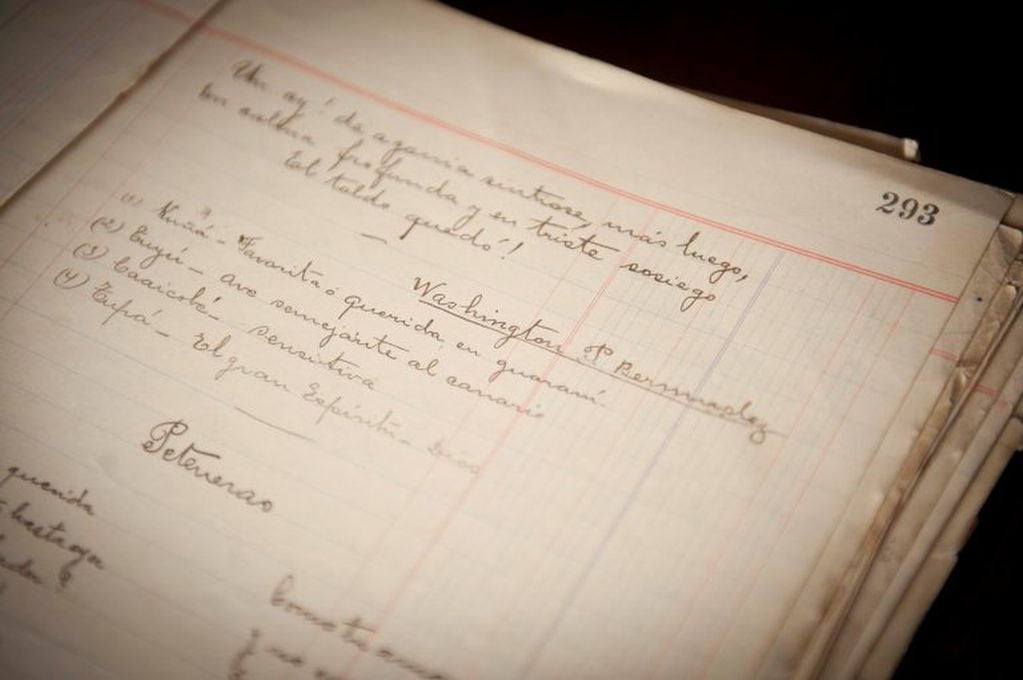 293
Un ay! de agonía sintiose, más luego,
En calma profunda y en triste sosiego
El toldo quedó!
Washington P Bermudez
(1) Kuñá - Favorita, o querida en guaraní.
(2) Euyú - ave semejante al canario
(3) Caaicobé - sensitiva
(4) Tupá - El gran Espíritu - Dios
Peteneras
querida
hada
como tu amor
no